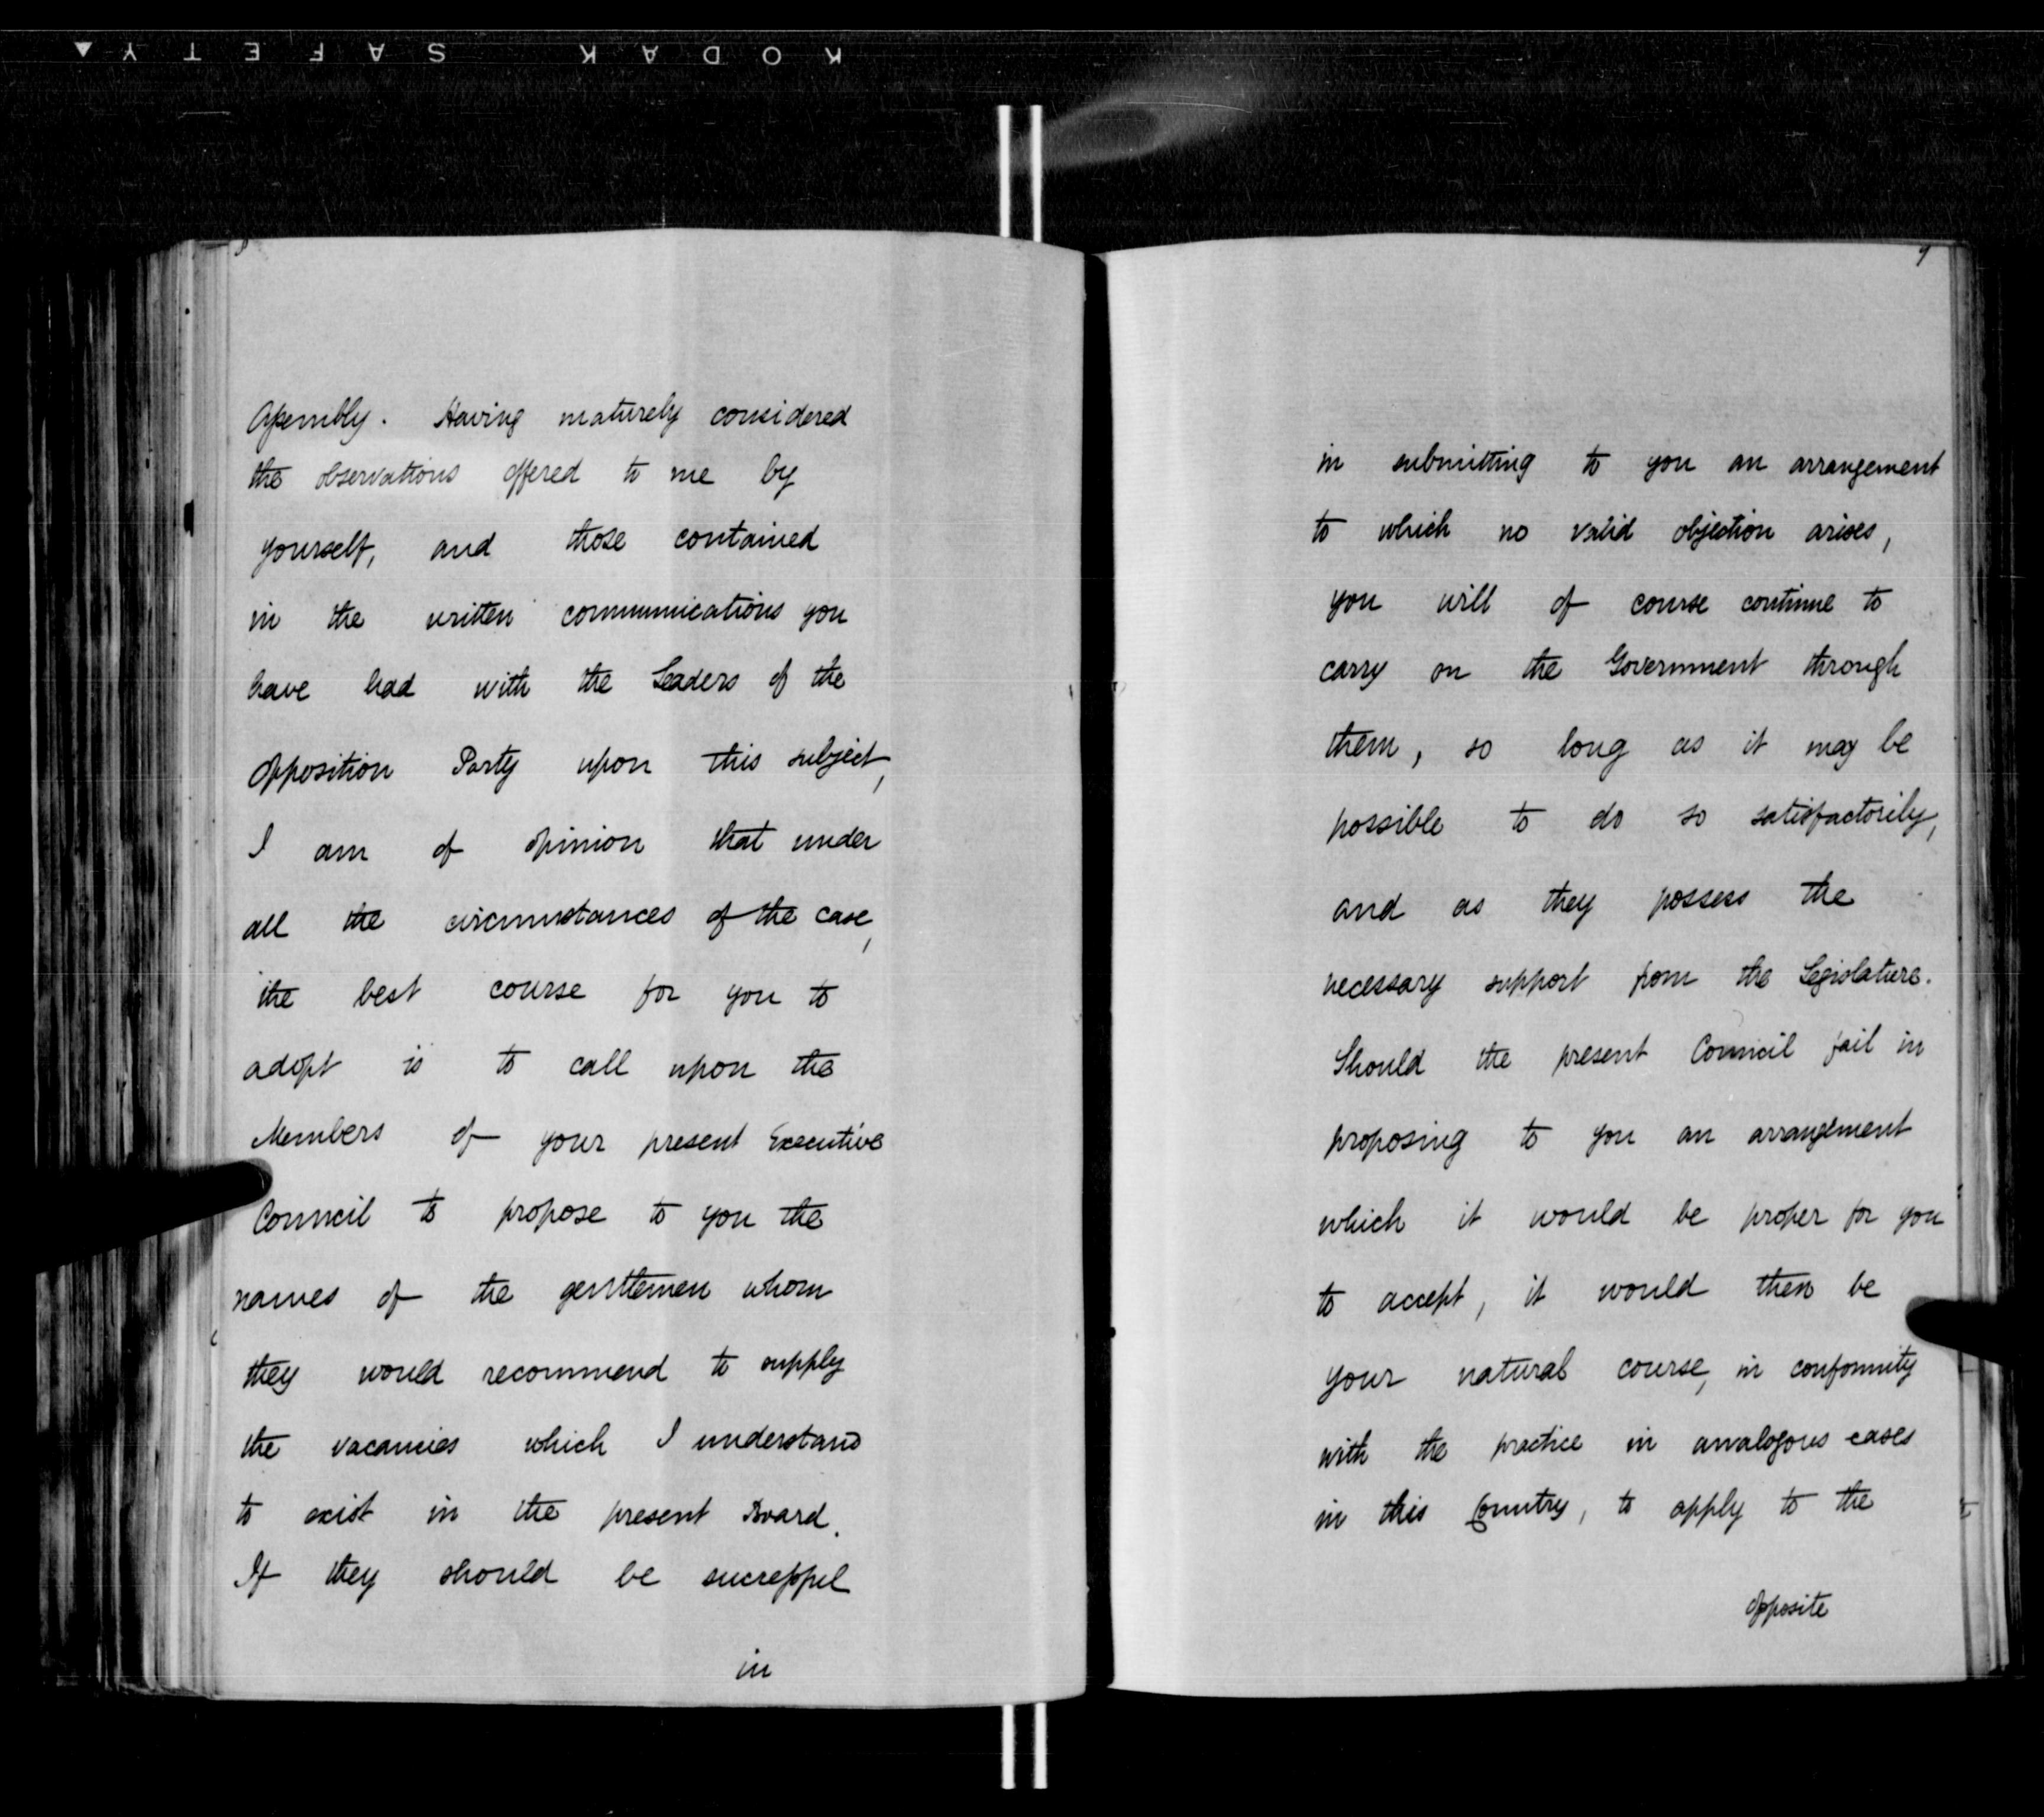 KODAK SAFETY
8
Assembly. Having maturely considered
the observations offered to me by
yourself, and those contained
in the written communications you
have had with the Leaders of the
Opposition Party upon this subject,
I am of opinion that under
all the circumstances of the case,
the best course for you to
adopt is to call upon the
Members of your present Executive
Council to propose to you the
names of the gentlemen whom
they would recommend to supply
the vacancies which I understand
to exist in the present Board.
If they should be successful
in
9
in submitting to you an arrangement
to which no valid objection arises,
you will of course continue to
carry on the Government through
them, so long as it may be
possible to do so satisfactorily,
and as they possess the
necessary support from the Legislature.
Should the present Council fail in
proposing to you an arrangement
which it would be proper for you
to accept, it would then be
your natural course, in conformity
with the practice in analogous cases
in this Country, to apply to the
opposite